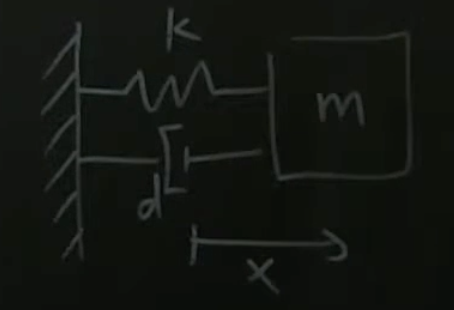 k
m
d
x